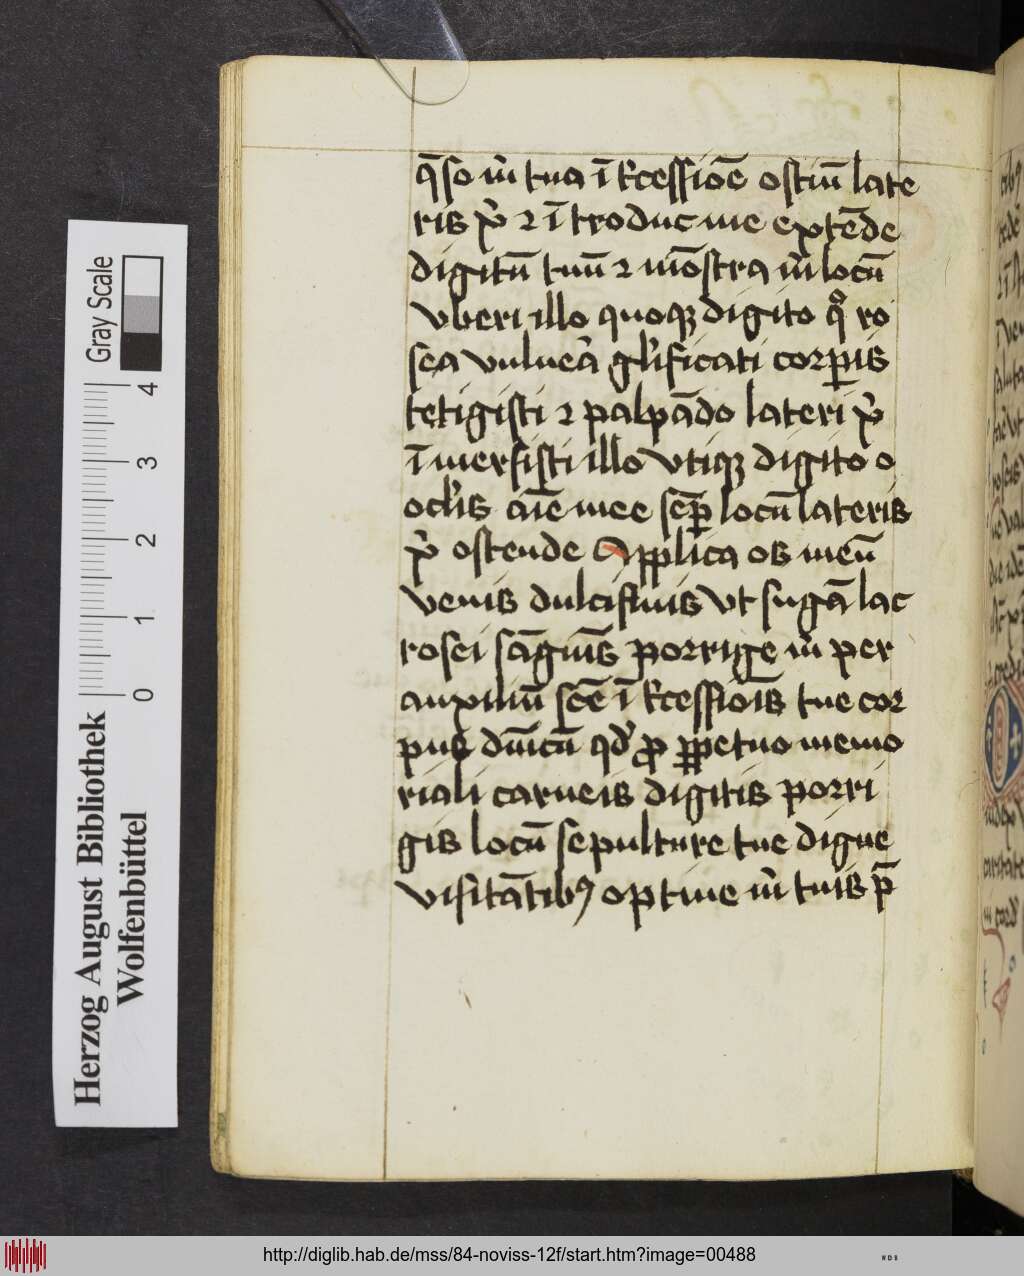 q̄so m̄ tua ī t̄cessiōe ostiū late
ris xp̄i ⁊ ī troduc me extēde
digitū tuū ⁊ mōstra m̄ locū
vberi illo quoqȝ digito qͦ ro
sea vulnea᷑ gl̓ificati corꝑis
tetigisti ⁊ palpādo lateri xp̄i
īmersisti illo vtiqȝ digito o
ocl̓is aīe mee sēꝑ locū lateris
xp̄i ostende Applica os meū
venis dulcissimis vt sugā lac
rosei sāguīs porrige m̄ per
auxiliū scē īt̄cessiōis tue cor
pus dm̄cū qd̓ ꝓ ꝑpetuo memo
riali carneis digitis porri
gis locū sepulture tue digne
visitātibꝰ optine m̄ tuis p̄
Herzog August Bibliothek
Wolfenbüttel
Gray Scale
0 1 2 3 4
http://diglib.hab.de/mss/84-noviss-12f/start.htm?image=00488